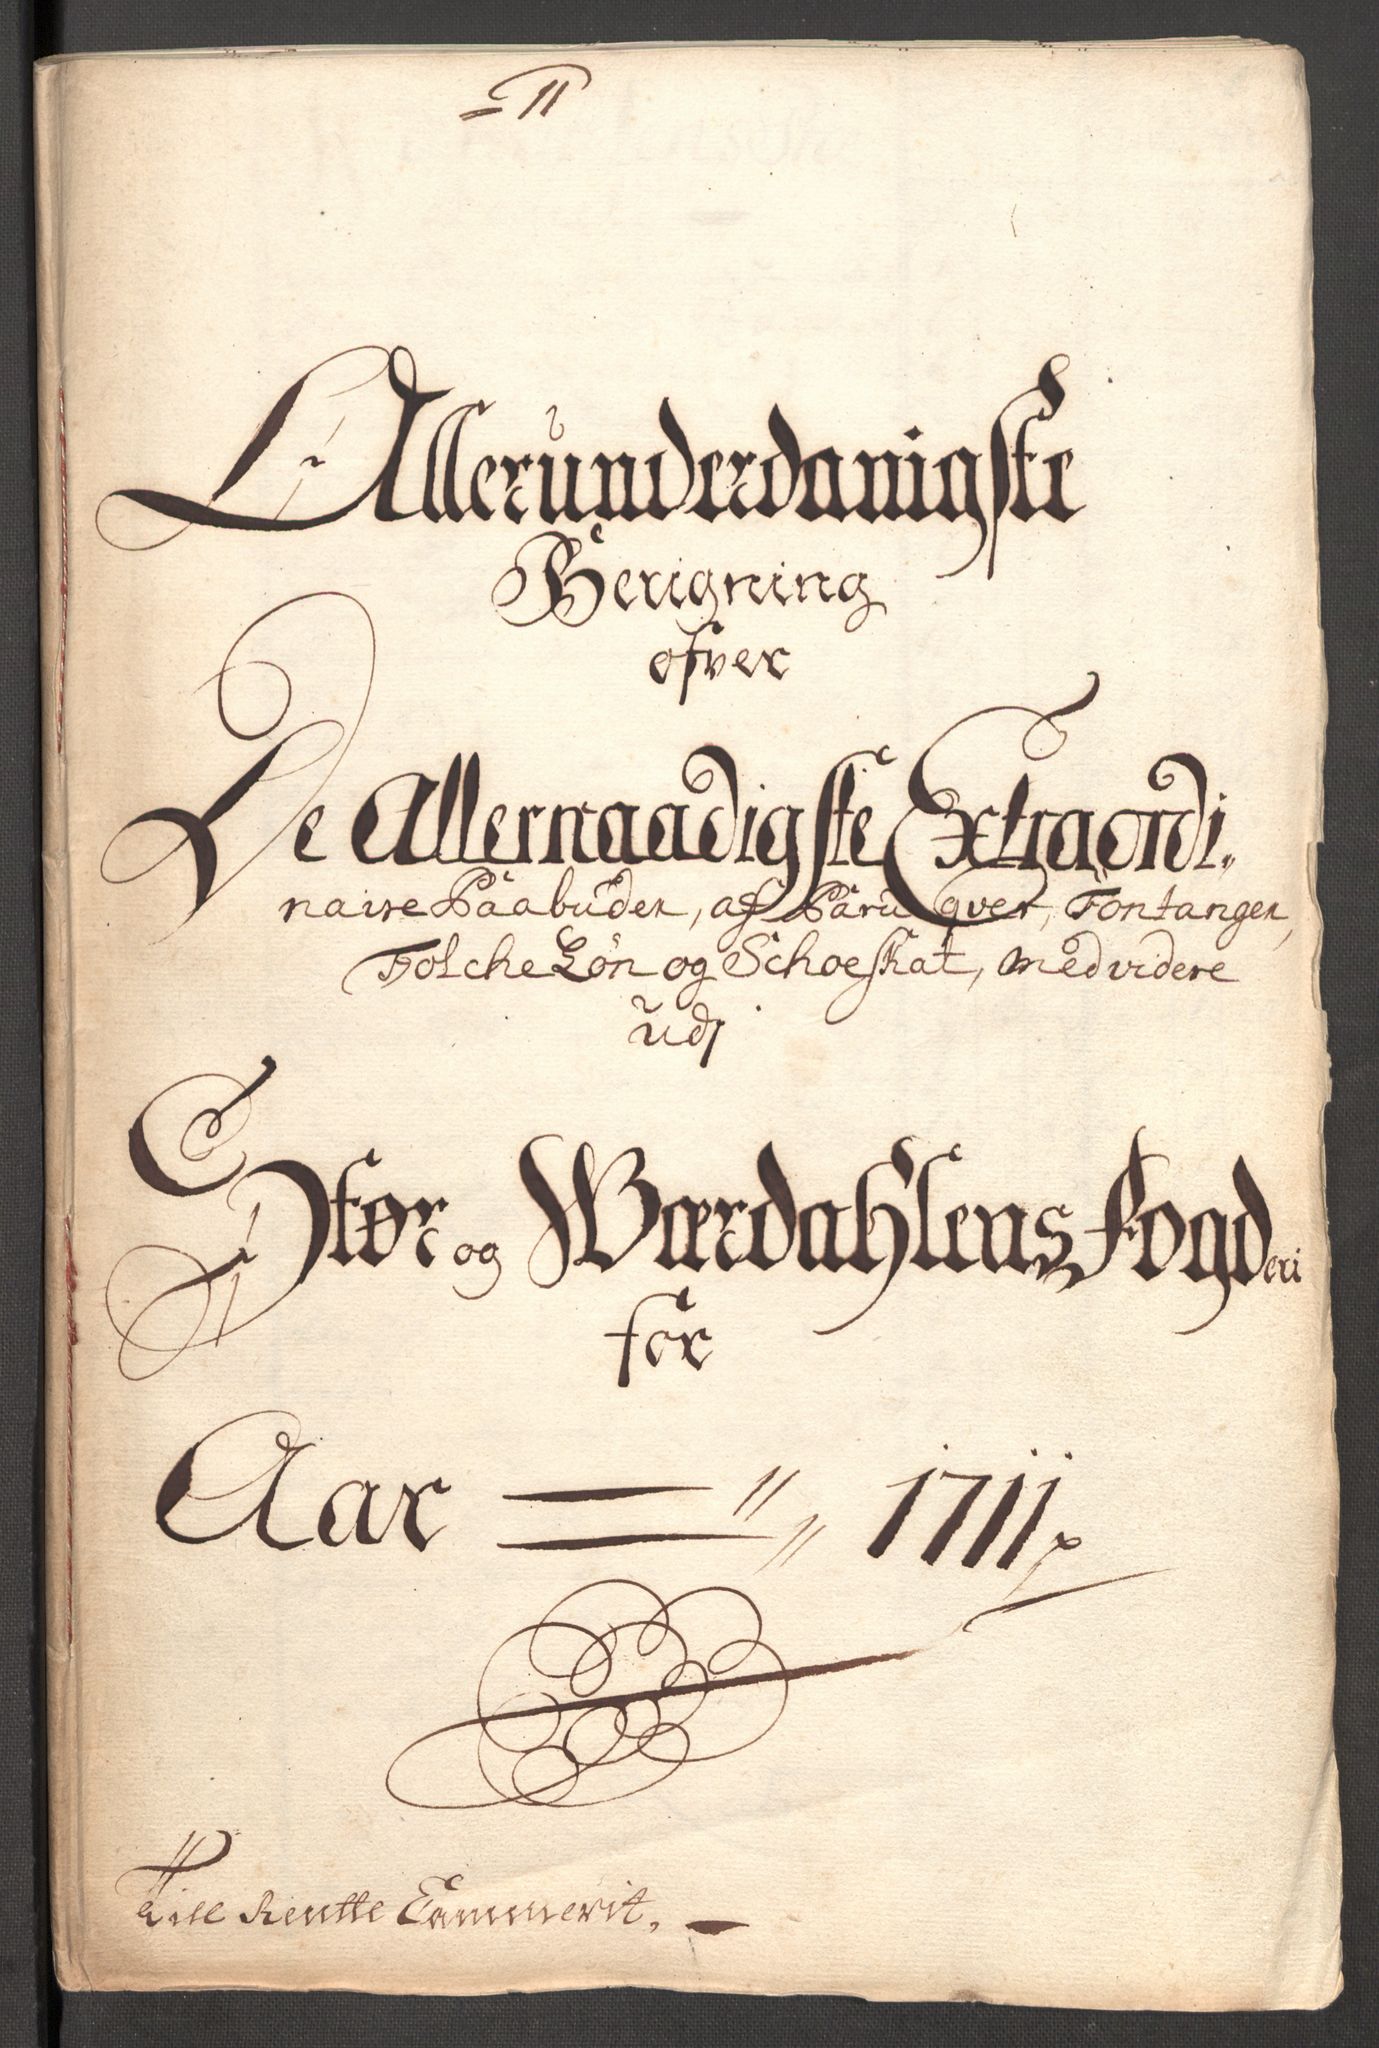 11
Allerunderdanigste
Berigning
ofver
De Allernaadigste Extraordi„
naire Paabuden, af Paruqver, Fontanger,
Folche Løn og Schoeskat, med videre
udj
Stør og Wærdahlens Fogderi
for
Aar 1711
Till Rentte Cammerit.